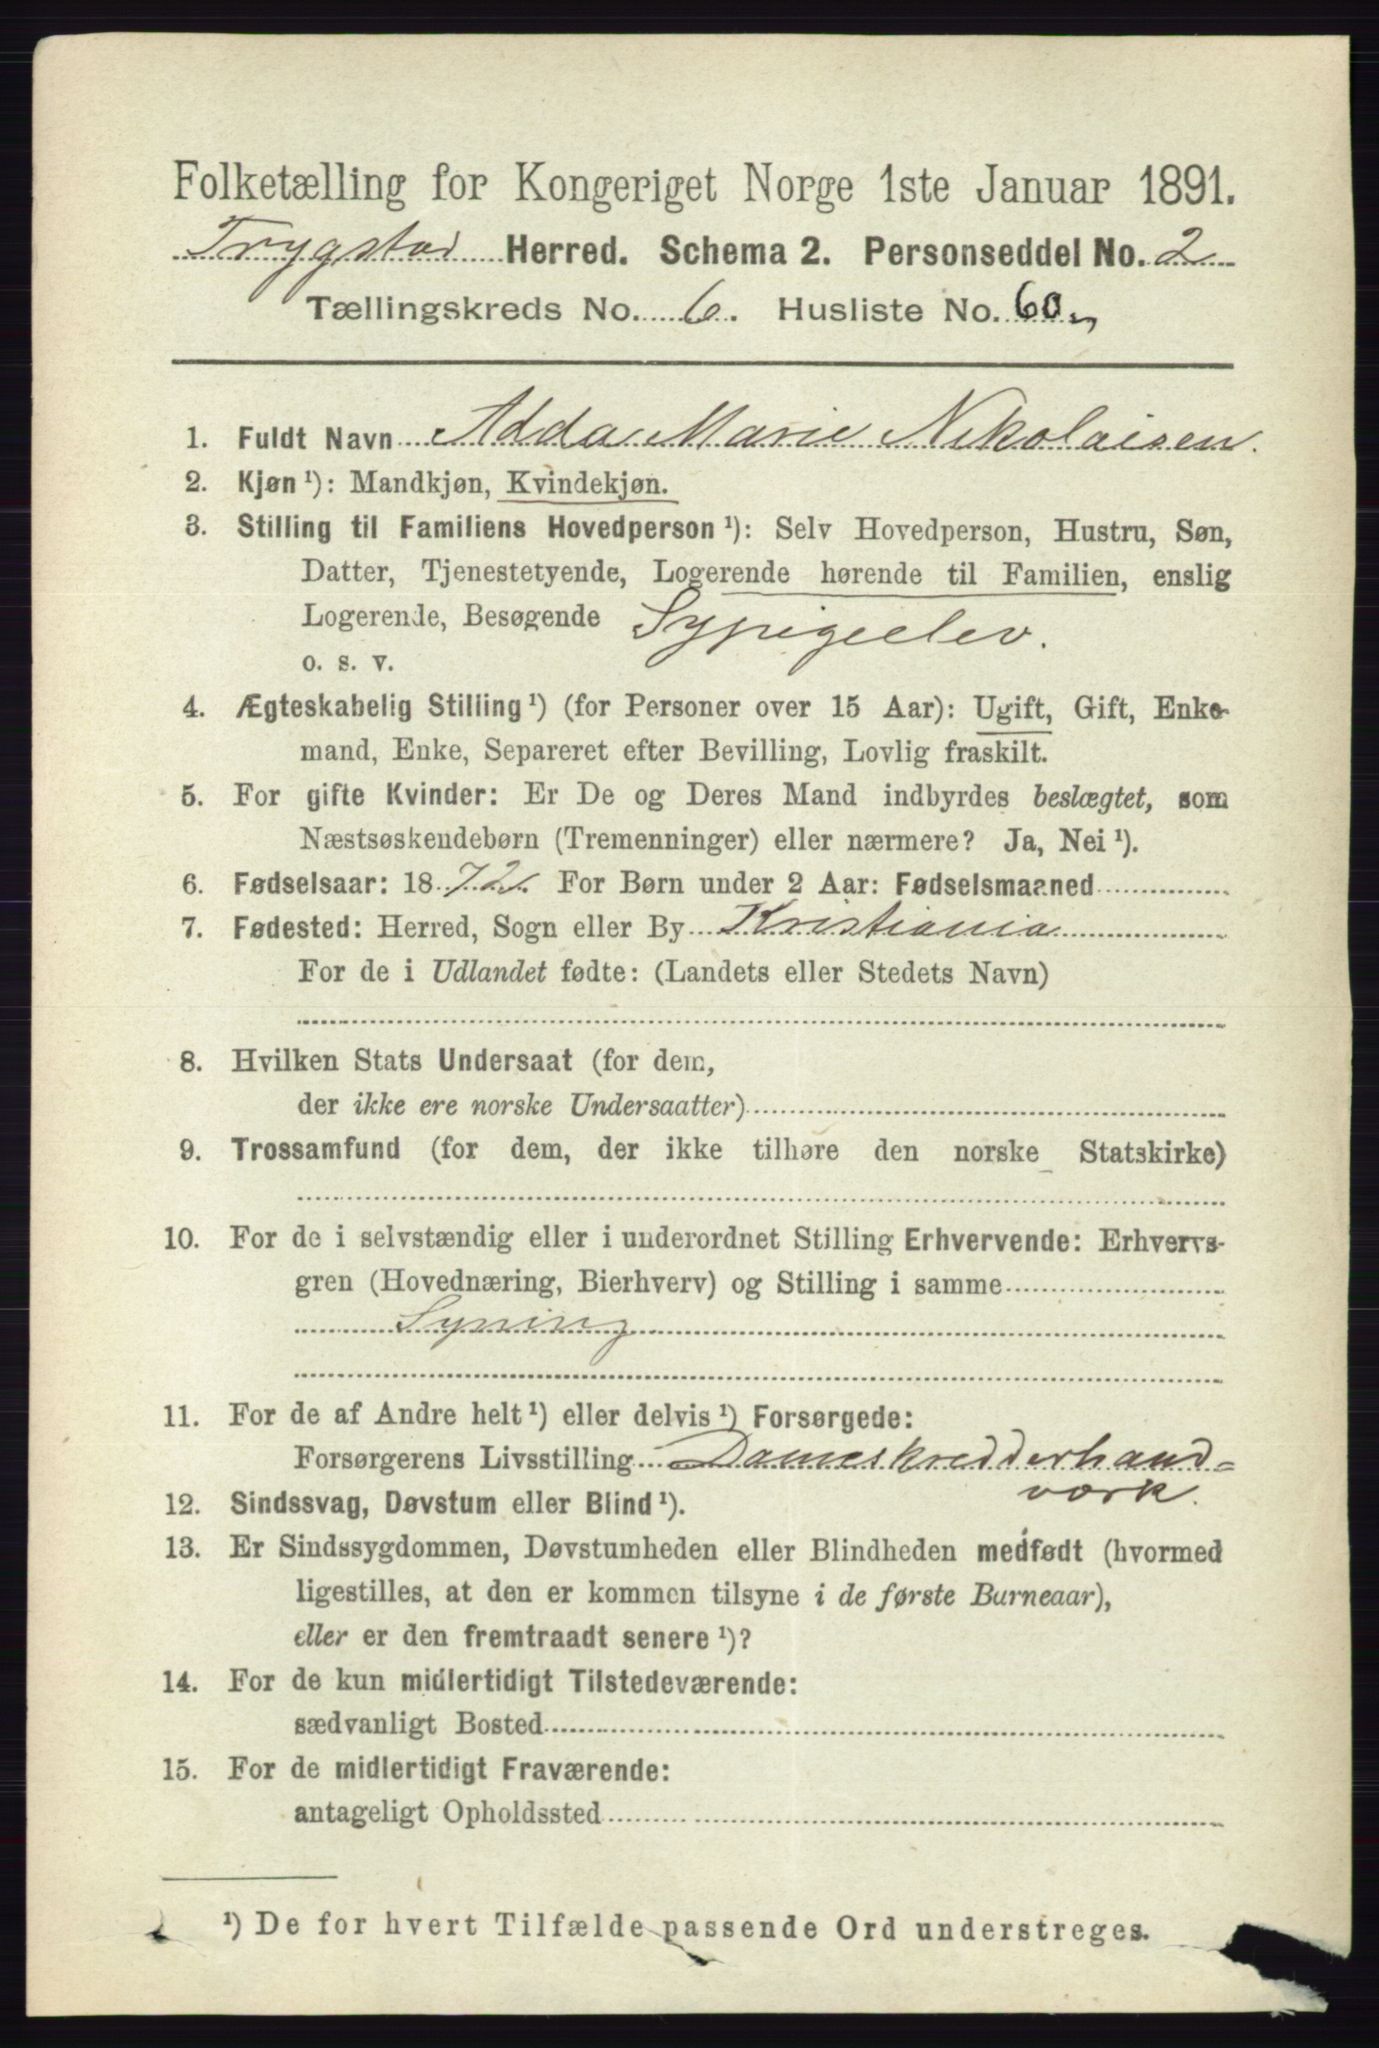 Folketælling for Kongeriget Norge 1ste Januar 1891.
Trygstad Herred. Schema 2. Personseddel No. 2
Tællingskreds No. 6. Husliste No. 60
1. Fuldt Navn Adda Marie Nikolaisen.
2. Kjøn ¹): Mandkjøn, Kvindekjøn.
3. Stilling til Familiens Hovedperson ¹): Selv Hovedperson, Hustru, Søn,
Datter, Tjenestetyende, Logerende hørende til Familien, enslig
Logerende, Besøgende Sypigeelev.
o. s. v.
4. Ægteskabelig Stilling ¹) (for Personer over 15 Aar): Ugift, Gift, Enke-
mand, Enke, Separeret efter Bevilling, Lovlig fraskilt.
5. For gifte Kvinder: Er De og Deres Mand indbyrdes beslægtet, som
Næstsøskendebørn (Tremenninger) eller nærmere? Ja, Nei ¹).
6. Fødselsaar: 1872. For Børn under 2 Aar: Fødselsmaaned
7. Fødested: Herred, Sogn eller By Kristiania
For de i Udlandet fødte: (Landets eller Stedets Navn)
8. Hvilken Stats Undersaat (for dem,
der ikke ere norske Undersaatter)
9. Trossamfund (for dem, der ikke tilhøre den norske Statskirke)
10. For de i selvstændig eller i underordnet Stilling Erhvervende: Erhvervs-
gren (Hovednæring, Bierhverv) og Stilling i samme
Syning
11. For de af Andre helt ¹) eller delvis ¹) Forsørgede:
Forsørgerens Livsstilling Dameskrædderhand=
værk.
12. Sindssvag, Døvstum eller Blind ¹).
13. Er Sindssygdommen, Døvstumheden eller Blindheden medfødt (hvormed
ligestilles, at den er kommen tilsyne i de første Barneaar),
eller er den fremtraadt senere ¹)?
14. For de kun midlertidigt Tilstedeværende:
sædvanligt Bosted
15. For de midlertidigt Fraværende:
antageligt Opholdssted
¹) De for hvert Tilfælde passende Ord understreges.